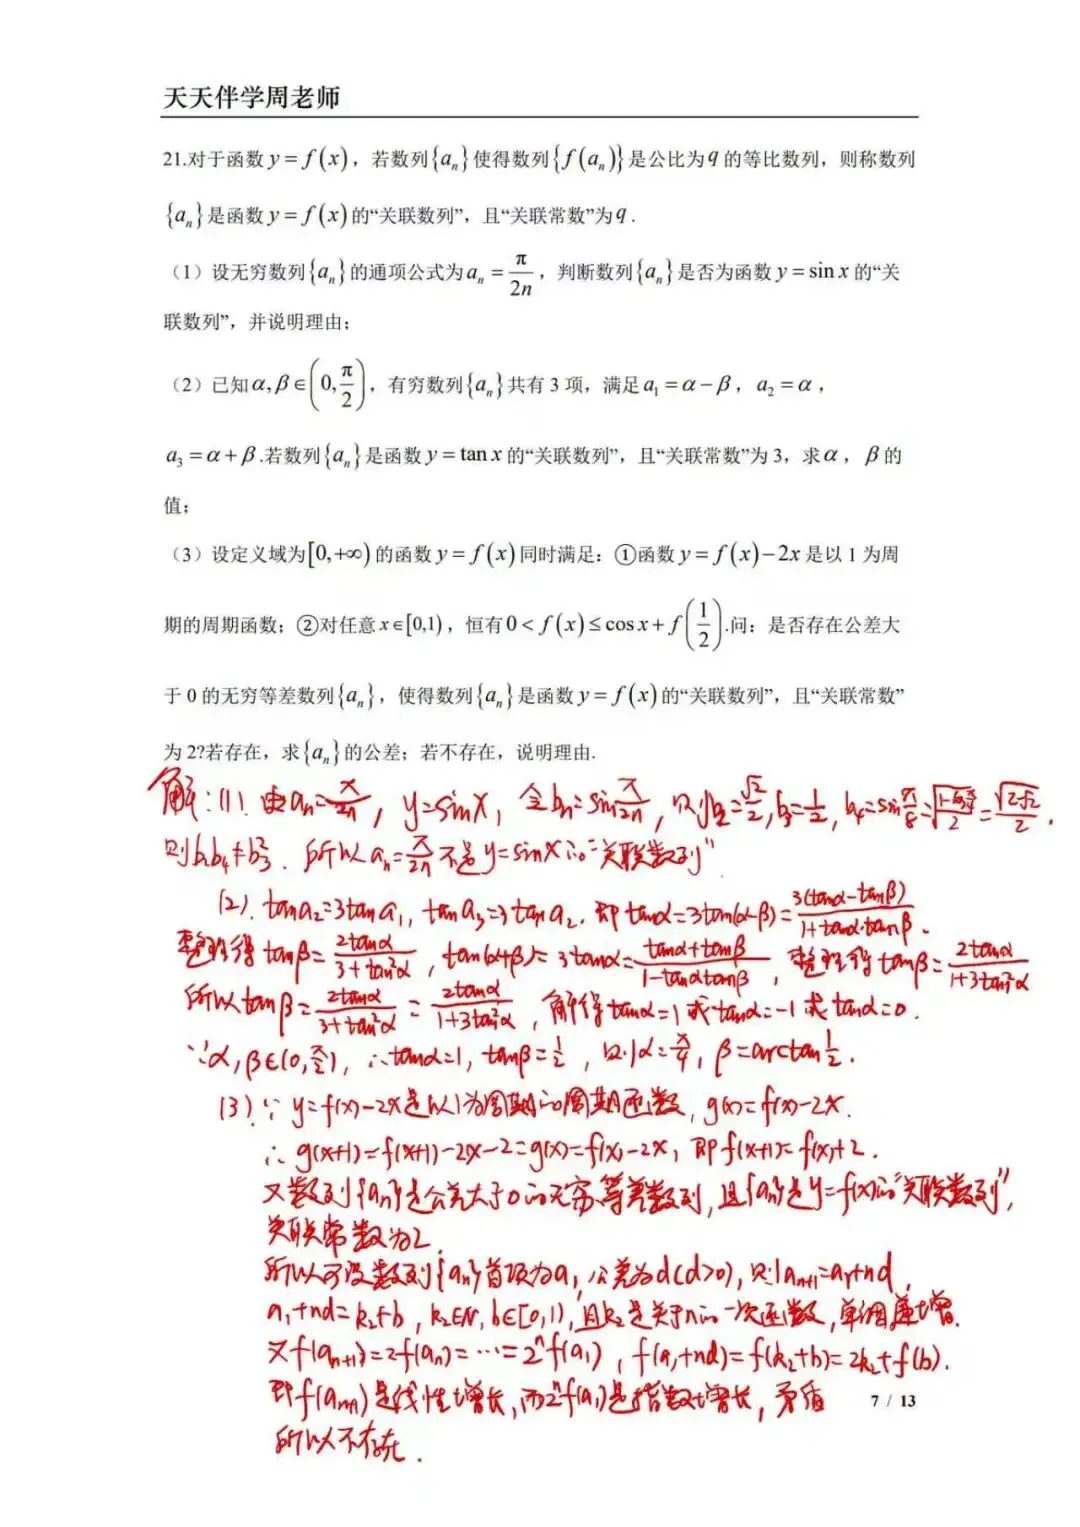 天天伴学周老师
21.对于函数 y = f(x)，若数列{aₙ}使得数列{f(aₙ)}是公比为q的等比数列，则称数列
{aₙ}是函数 y = f(x)的“关联数列”，且“关联常数”为q.
（1）设无穷数列{aₙ}的通项公式为aₙ = π/2n，判断数列{aₙ}是否为函数 y = sin x 的“关
联数列”，并说明理由；
（2）已知α,β∈(0,π/2)，有穷数列{aₙ}共有 3 项，满足a₁ = α−β，a₂ = α，
a₃ = α+β.若数列{aₙ}是函数 y = tan x 的“关联数列”，且“关联常数”为 3，求α，β的
值；
（3）设定义域为[0,+∞)的函数 y = f(x)同时满足：①函数 y = f(x)−2x 是以 1 为周
期的周期函数；②对任意 x∈[0,1)，恒有 0 < f(x) ≤ cos x + f(1/2).问：是否存在公差大
于 0 的无穷等差数列{aₙ}，使得数列{aₙ}是函数 y = f(x)的“关联数列”，且“关联常数”
为 2?若存在，求{aₙ}的公差；若不存在，说明理由.
解：(1). 由aₙ=π/2n，y=sinx，令bₙ=sinπ/2n，则b₂=√2/2，b₃=1/2，b₄=sinπ/8=
则b₂b₄≠b₃². 所以aₙ=π/2n不是y=sinx的“关联数列”
(2). tana₂=3tana₁，tana₃=3tana₂. 即tanα=3tan(α-β)=3(tanα-tanβ)/1+tanα·tanβ.
整理得tanβ=2tanα/3+tan²α，tan(α+β)=3tanα=tanα+tanβ/1-tanαtanβ，整理得tanβ=2tanα/1+3tan²α
所以tanβ=2tanα/3+tan²α=2tanα/1+3tan²α，解得tanα=1或tanα=-1或tanα=0.
∵α,β∈(0,π/2)，∴tanα=1，tanβ=1/2，则α=π/4，β=arctan1/2.
(3)∵y=f(x)-2x是以1为周期的周期函数，g(x)=f(x)-2x.
∴g(x+1)=f(x+1)-2x-2=g(x)=f(x)-2x，即f(x+1)=f(x)+2.
又数列{aₙ}是公差大于0的无穷等差数列，且{aₙ}是y=f(x)的“关联数列”，
关联常数为2.
所以可设数列{aₙ}首项为a₁，公差为d(d>0)，则aₙ₊₁=a₁+nd，
a₁+nd=k₂+b，k₂∈N，b∈[0,1)，且k₂是关于n的一次函数，单调递增.
又f(aₙ₊₁)=2f(aₙ)=…=2ⁿf(a₁)，f(a₁+nd)=f(k₂+b)=2k₂+f(b).
即f(aₙ₊₁)是线性增长，而2ⁿf(a₁)是指数增长，矛盾
所以不存在.
7 / 13